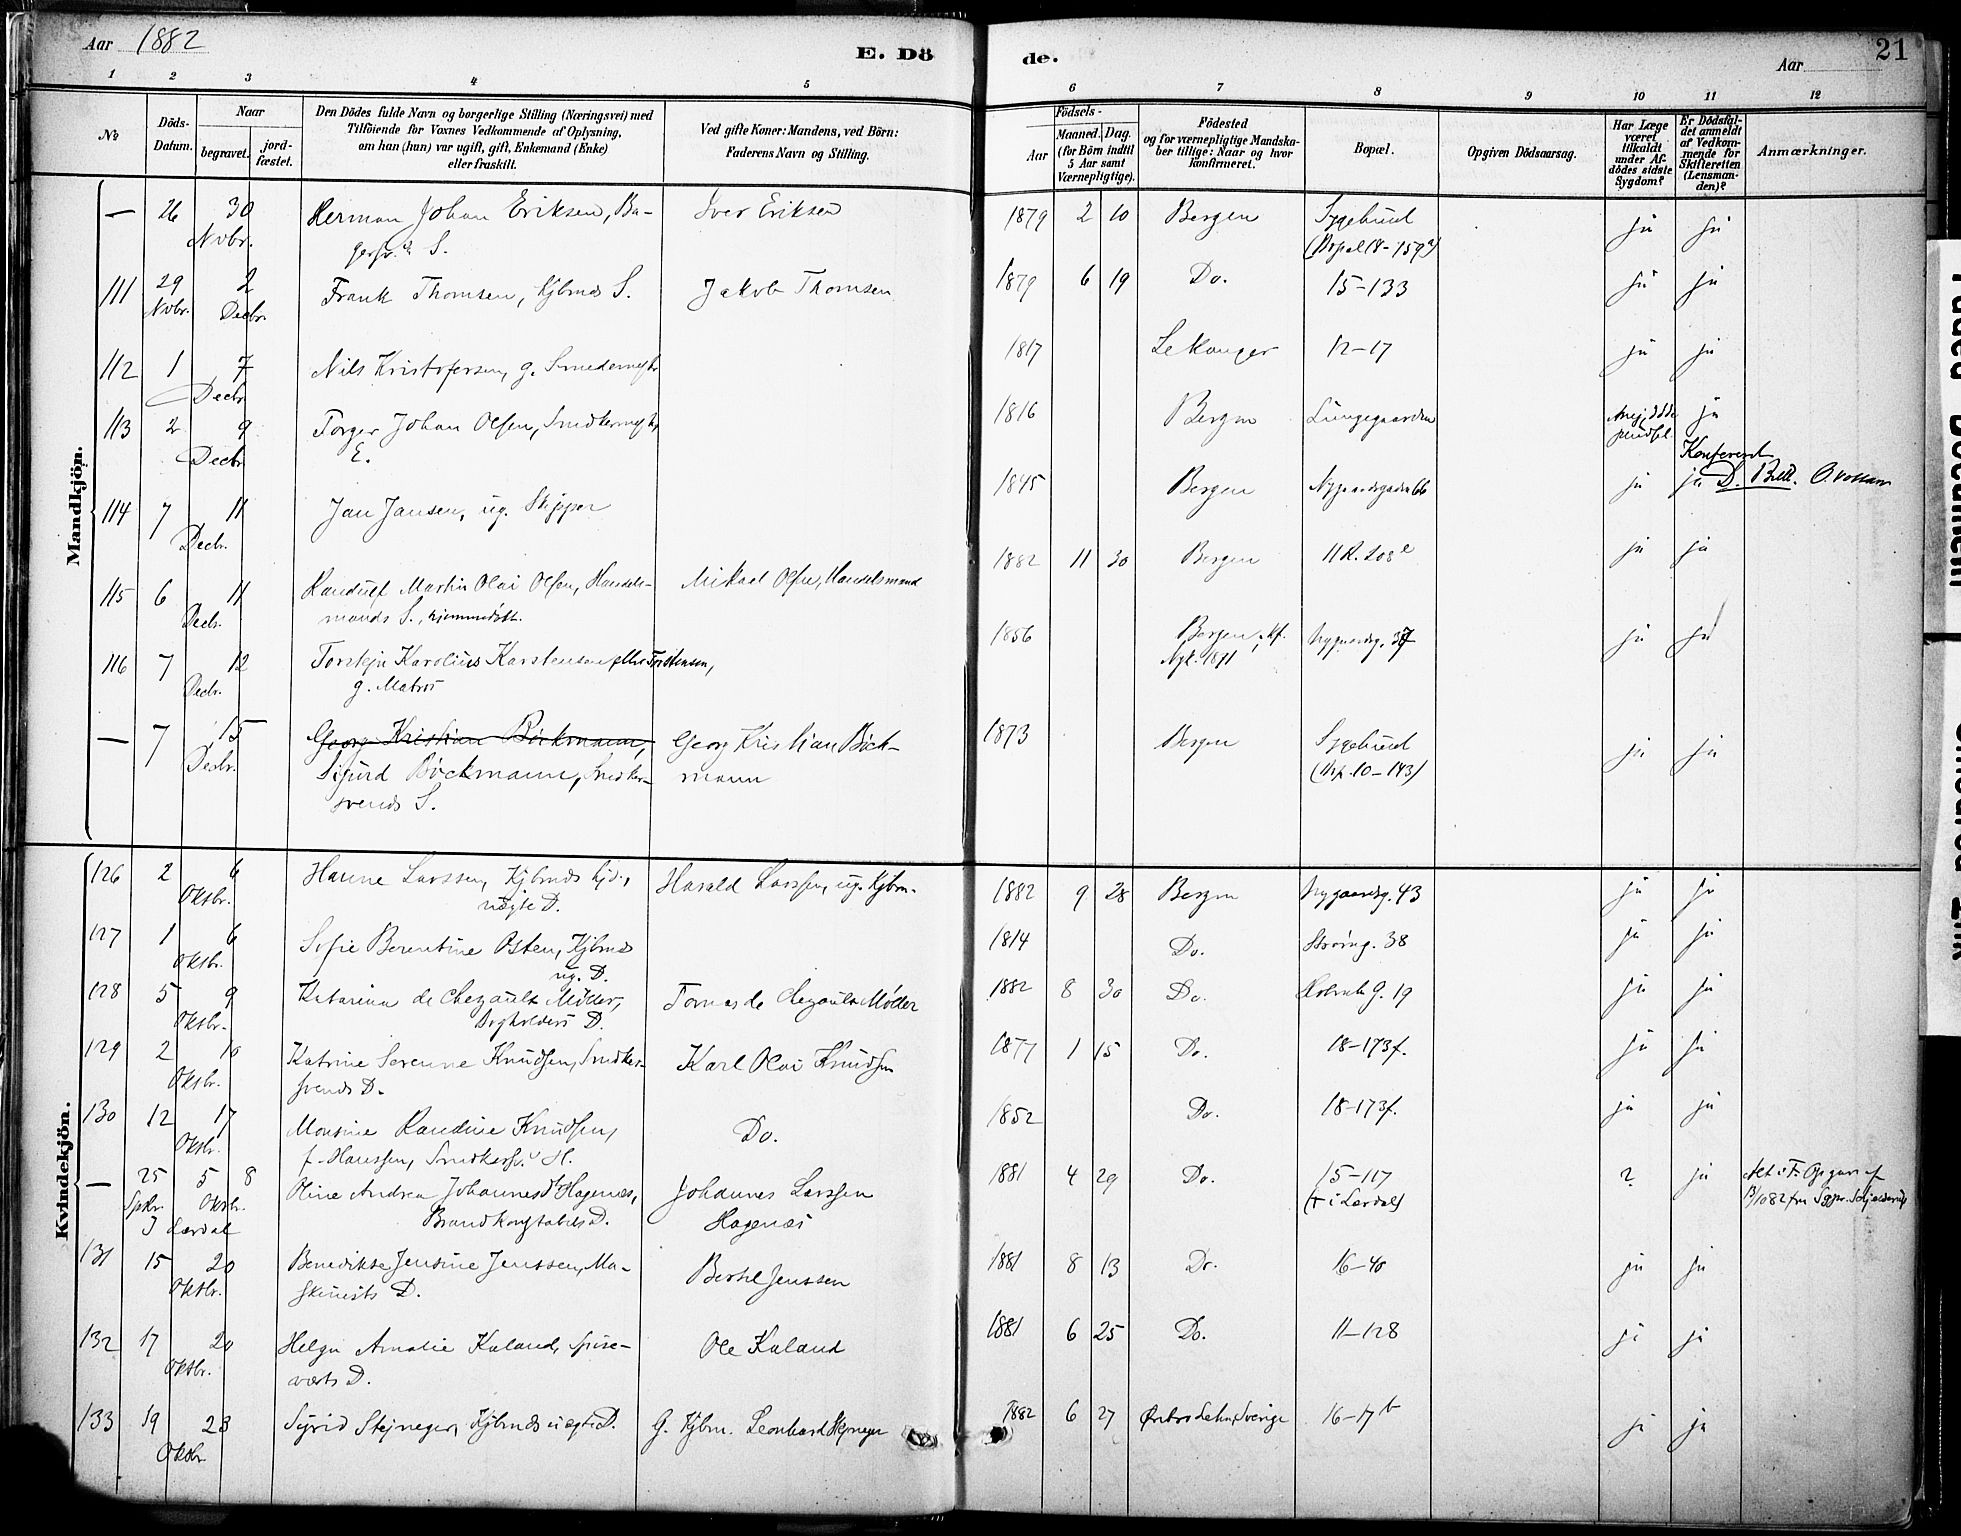 Aar 1882
E. Dö
de.
Aar
21
1 2 3 4 5 6 7 8 9 10 11 12
No
Döds-
Datum.
Naar
begravet.
jord-
fæstet.
Den Dödes fulde Navn og borgerlige Stilling (Næringsvei) med
Tilföiende for Voxnes Vedkommende af Oplysning,
om han (hun) var ugift, gift, Enkemand (Enke)
eller fraskilt.
Ved gifte Koner: Mandens, ved Börn:
Faderens Navn og Stilling.
Födsels-
Aar
Maaned. Dag.
(for Börn indtil
5 Aar samt
Værnepligtige).
Födested
og for værnepligtige Mandska-
ber tillige: Naar og hvor
konfirmeret.
Bopæl.
Opgiven Dödsaarsag.
Har Læge
været
tilkaldt
under Af-
dödes sidste
Sygdom?
Er Dödsfal-
det anmeldt
af Vedkom-
mende for
Skifteretten
(Lensman-
den)?
Anmærkninger.
Mandkjön.
— 26 30 Herman Johan Eriksen, Ba- Iver Eriksen 1879 2 10 Bergen Sygehuset ja ja
Novbr. S.
111 29 2 Frank Thomsen, Kjbmds S. Jakob Thomsen 1879 6 19 Do. 15-133 ja ja
Novbr. Decbr.
112 1 7 Nils Kristofersen, g. Smedemestr 1817 Lekanger 12-17 ja ja
Decbr.
113 2 9 Torger Johan Olsen, Snedkermestr, 1816 Bergen Lungegaarden ja
Decbr. E.
114 7 11 Jan Jansen, ug. Skipper 1845 Bergen Nygaardsgaden 66 ja ja
Decbr.
115 6 11 Randulf Martin Olai Olsen, Handels- Mikael Olsen, Handelsmand 1882 11 30 Bergen 11 R. 208 e ja ja
Decbr. mands S., hjemmedöbt.
116 7 12 Torstein Karolius Karstensen eller Torstensen, 1856 Bergen, kf. Nygaardsg. 37 ja ja
Decbr. g. Matros Nyk. 1871
— 7 15 Georg Kristian Böckmann, Georg Kristian Böck- 1873 Bergen Sygehuset ja ja
Decbr. Sigurd Böckmann, Snedker- mann (Bop. 10-143)
svends S.
Kvindekjön.
126 2 6 Hanne Larssen, Kjbmds Harald Larssen, ug. Kjbm. 1882 9 28 Bergen Nygaardsg. 43 ja ja
Oktbr. uægte D.
127 1 6 Sofie Berentine Osten, Kjbmds 1814 Do. 38 ja ja
Oktbr. ug. D.
128 5 9 Katarina de Chezaulx Möller, Tomas de Chezaulx Möller 1882 8 30 Do. G. 19 ja ja
Oktbr. D.
129 2 10 Katrine Serenne Knudsen, Snedker- Karl Olai Knudsen 1877 1 15 Do. 18-173f. ja ja
Oktbr. svends D.
130 12 17 Monsine Randine Knudsen, Do. 1852 Do. 18-173f. ja ja
Oktbr. f. Hanssen, Snedkersv. H.
— 25 5 8 Oline Andrea Johannesd. Hagenæs, Johannes Larssen 1881 4 29 Do. 15-117 ? ja
Oktbr. Brandkonstabels D. Hagenæs († i Lærdal)
I Lærdal
131 15 20 Benedikte Jensine Jenssen, Ma- Bertel Jenssen 1881 8 13 Do. 16-40 ja ja
Oktbr. skinists D.
132 17 20 Helga Amalie Kaland, Spise- Ole Kaland 1881 6 25 Do. 11-128 ja ja
Oktbr. værts D.
133 19 23 Sigrid Stejneger, Kjbmds uægte D. G. Kjbm. Leonhard Stejneger 1882 6 27 Örebro Lehn, Sverige 16-17 b ja ja
Oktbr.